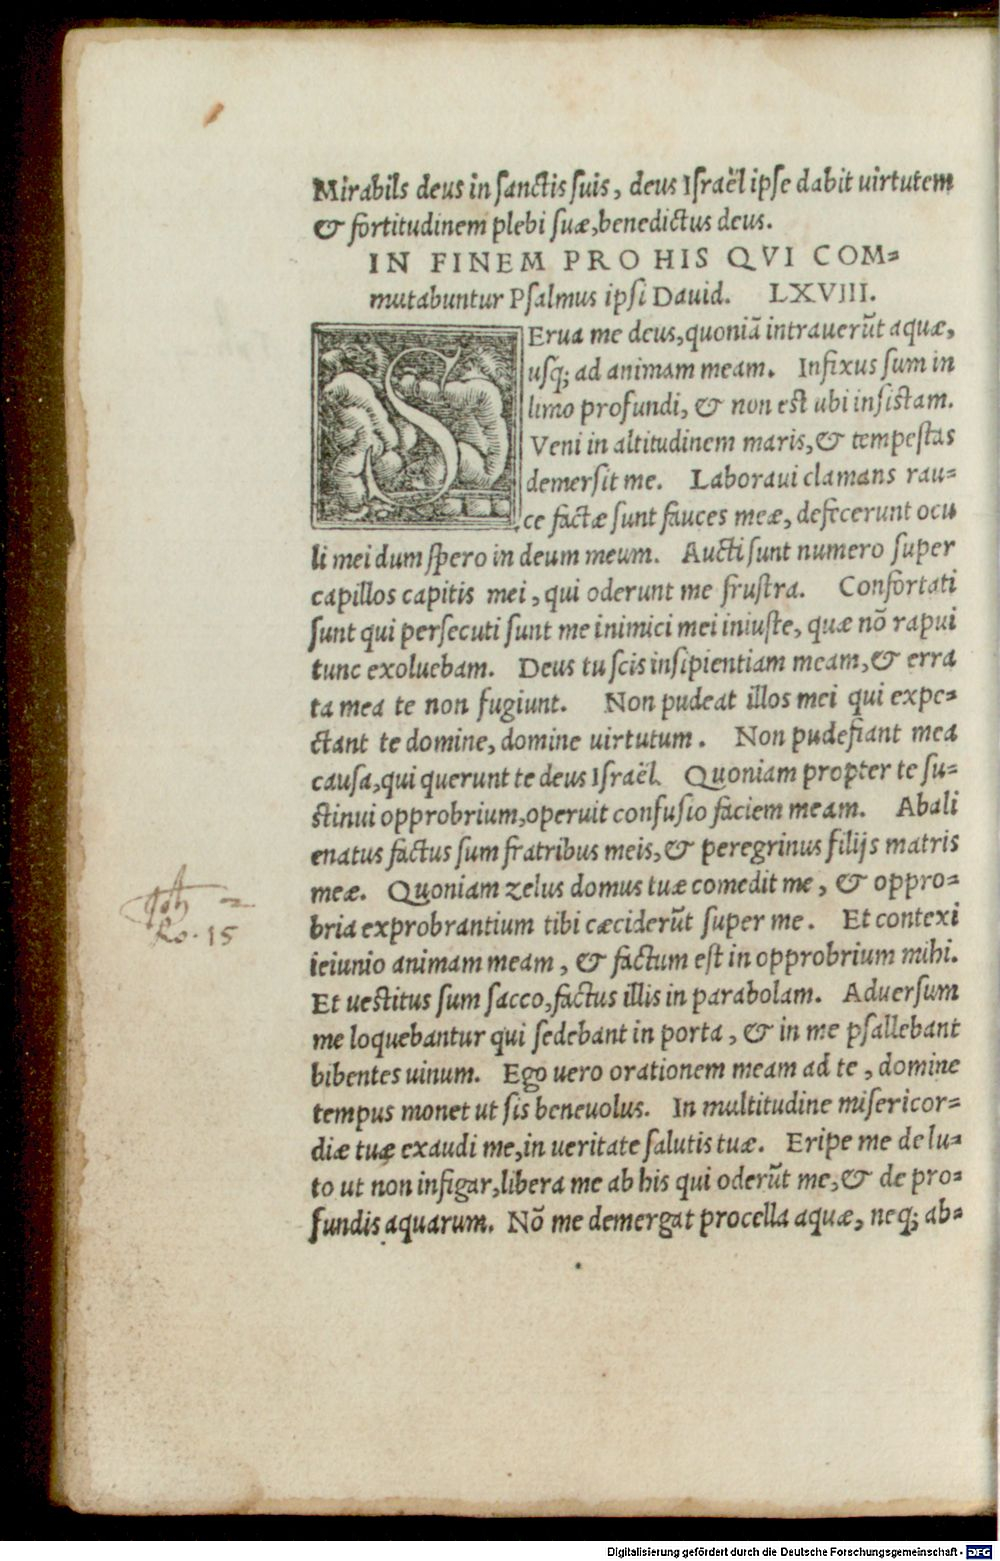 Mirabils deus in ſanctis ſuis, deus Iſraël ipſe dabit uirtutem
& fortitudinem plebi ſuæ, benedictus deus.
IN FINEM PRO HIS QVI COM=
mutabuntur Pſalmus ipſi Dauid. LXVIII.
SErua me deus, quoniā intrauerūt aquæ,
uſq; ad animam meam. Infixus ſum in
limo profundi, & non est ubi inſiſtam.
Veni in altitudinem maris, & tempeſtas
demerſit me. Laboraui clamans rau=
ce factæ ſunt fauces meæ, defecerunt ocu
li mei dum ſpero in deum meum. Aucti ſunt numero ſuper
capillos capitis mei, qui oderunt me fruſtra. Confortati
ſunt qui perſecuti ſunt me inimici mei iniuſte, quæ nō rapui
tunc exoluebam. Deus tu ſcis inſipientiam meam, & erra
ta mea te non fugiunt. Non pudeat illos mei qui expe=
ctant te domine, domine uirtutum. Non pudefiant mea
cauſa, qui querunt te deus Iſraël. Quoniam propter te ſu=
ſtinui opprobrium, operuit confuſio faciem meam. Abali
enatus factus ſum fratribus meis, & peregrinus filijs matris
meæ. Quoniam zelus domus tuæ comedit me, & oppro=
bria exprobrantium tibi cæciderūt ſuper me. Et contexi
ieiunio animam meam, & factum eſt in opprobrium mihi.
Et ueſtitus ſum ſacco, factus illis in parabolam. Aduerſum
me loquebantur qui ſedebant in porta, & in me pſallebant
bibentes uinum. Ego uero orationem meam ad te, domine
tempus monet ut ſis beneuolus. In multitudine miſericor=
diæ tuæ exaudi me, in ueritate ſalutis tuæ. Eripe me de lu=
to ut non infigar, libera me ab his qui oderūt me, & de pro=
fundis aquarum. Nō me demergat procella aquæ, neq; ab=
Joh 2
Ro. 15
Digitalisierung gefördert durch die Deutsche Forschungsgemeinschaft - DFG